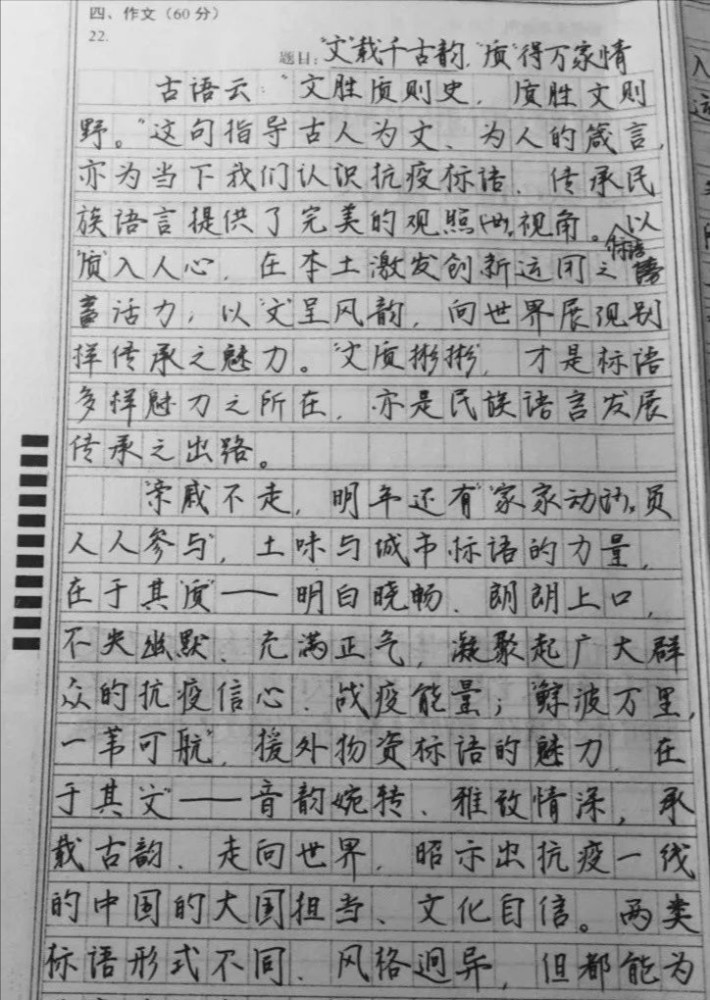 四、作文（60分）
22.
题目：“文”载千古韵，“质”得万家情
古语云：“文胜质则史，质胜文则
野。”这句指导古人为文、为人的箴言，
亦为当下我们认识抗疫标语、传承民
族语言提供了完美的观照视角。以
“质”入人心，在本土激发创新运用之标语
活力，以“文”呈风韵，向世界展现别
样传承之魅力。“文质彬彬”，才是标语
多样魅力之所在，亦是民族语言发展
传承之出路。
“亲戚不走，明年还有”“家家动员，
人人参与”，土味与城市标语的力量，
在于其“质”——明白晓畅、朗朗上口，
不失幽默、充满正气，凝聚起广大群
众的抗疫信心、战疫能量；“鲸波万里，
一苇可航”，援外物资标语的魅力，在
于其“文”——音韵婉转、雅致情深，承
载古韵、走向世界，昭示出抗疫一线
的中国的大国担当、文化自信。两类
标语形式不同、风格迥异，但都能为
入